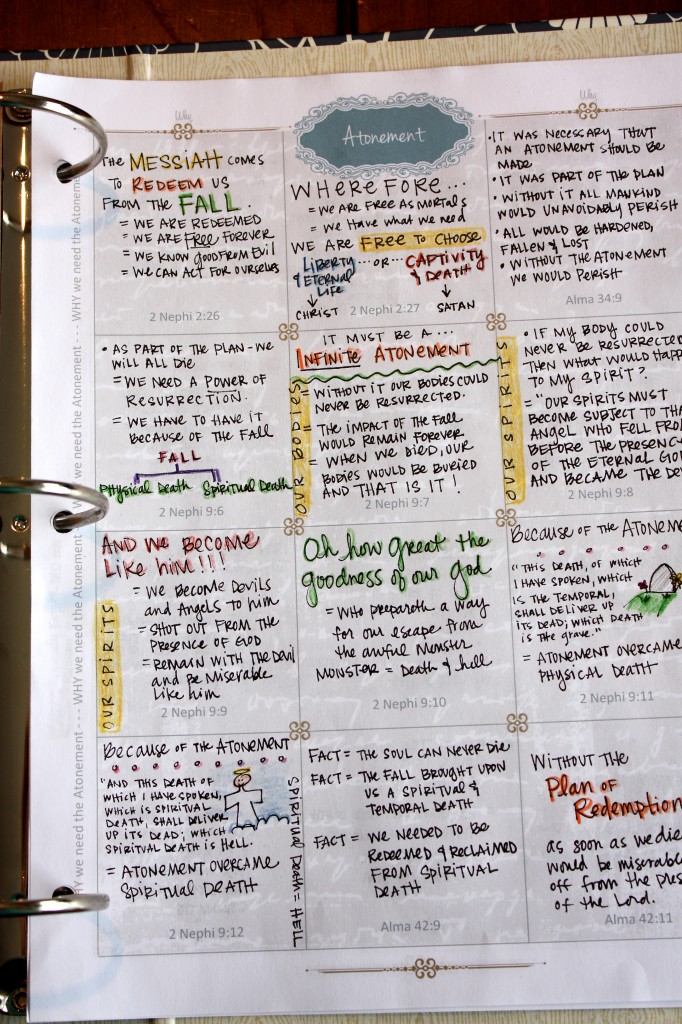 Why
Why
Atonement
WHY we need the Atonement - - - WHY we need the Atonement - - - WHY we need the Atonement - - - WHY we need the Atonement
The MESSIAH comes
TO REDEEM US
FROM THE FALL.
= WE ARE REDEEMED
= WE ARE FREE FOREVER
= WE KNOW GOOD FROM EVIL
= WE CAN ACT FOR OURSELVES
2 Nephi 2:26
WHEREFORE...
= WE ARE FREE AS MORTALS
= WE HAVE WHAT WE NEED
WE ARE FREE TO CHOOSE
LIBERTY & ETERNAL LIFE ...OR... CAPTIVITY & DEATH
CHRIST SATAN
2 Nephi 2:27
• IT WAS NECESSARY THAT
AN ATONEMENT SHOULD BE
MADE
• IT WAS PART OF THE PLAN
• WITHOUT IT ALL MANKIND
WOULD UNAVOIDABLY PERISH
• ALL WOULD BE HARDENED,
FALLEN & LOST
• WITHOUT THE ATONEMENT
WE WOULD PERISH
Alma 34:9
• AS PART OF THE PLAN - WE
WILL ALL DIE
= WE NEED A POWER OF
RESURRECTION.
= WE HAVE TO HAVE IT
BECAUSE OF THE FALL
FALL
Physical Death Spiritual Death
2 Nephi 9:6
IT MUST BE A...
INFINITE ATONEMENT
OUR BODIES
= WITHOUT IT OUR BODIES COULD
NEVER BE RESURRECTED.
= THE IMPACT OF THE FALL
WOULD REMAIN FOREVER
= WHEN WE DIED, OUR
BODIES WOULD BE BURIED
AND THAT IS IT!
2 Nephi 9:7
OUR SPIRITS
• IF MY BODY COULD
NEVER BE RESURRECTE
THEN WHAT WOULD HAPP
TO MY SPIRIT?
= "OUR SPIRITS MUST
BECOME SUBJECT TO THA
ANGEL WHO FELL FRO
BEFORE THE PRESENC
OF THE ETERNAL GO
AND BECAME THE DE
2 Nephi 9:8
AND WE BECOME
LIKE HIM!!!
OUR SPIRITS
= WE BECOME DEVILS
and ANGELS TO him
= SHUT OUT FROM THE
PRESENCE OF GOD
= REMAIN WITH THE DEVIL
and BE MISERABLE
LIKE him
2 Nephi 9:9
Oh how great the
goodness of our God
= WHO prepareth a way
for our escape from
the awful MONSTER
MONSTER = Death & hell
2 Nephi 9:10
Because OF THE ATONEME
"THIS DEATH, OF WHICH
I HAVE SPOKEN, WHICH
IS THE TEMPORAL,
SHALL DELIVER UP
ITS DEAD; WHICH DEATH
IS THE GRAVE."
= ATONEMENT OVERCAME
PHYSICAL DEATH
2 Nephi 9:11
Because OF THE ATONEMENT
"AND THIS DEATH OF
WHICH I HAVE SPOKEN,
WHICH IS SPIRITUAL
DEATH, SHALL DELIVER
UP ITS DEAD; WHICH
SPIRITUAL DEATH IS HELL.
= ATONEMENT OVERCAME
SPIRITUAL DEATH
SPIRITUAL DEATH = HELL
2 Nephi 9:12
FACT = THE SOUL CAN NEVER DIE
FACT = THE FALL BROUGHT UPON
US A SPIRITUAL &
TEMPORAL DEATH
FACT = WE NEEDED TO BE
REDEEMED & RECLAIMED
FROM SPIRITUAL
DEATH
Alma 42:9
WITHOUT THE
Plan OF
Redemption
as soon as we die
would be miserable
off from the pres
of the Lord.
Alma 42:11